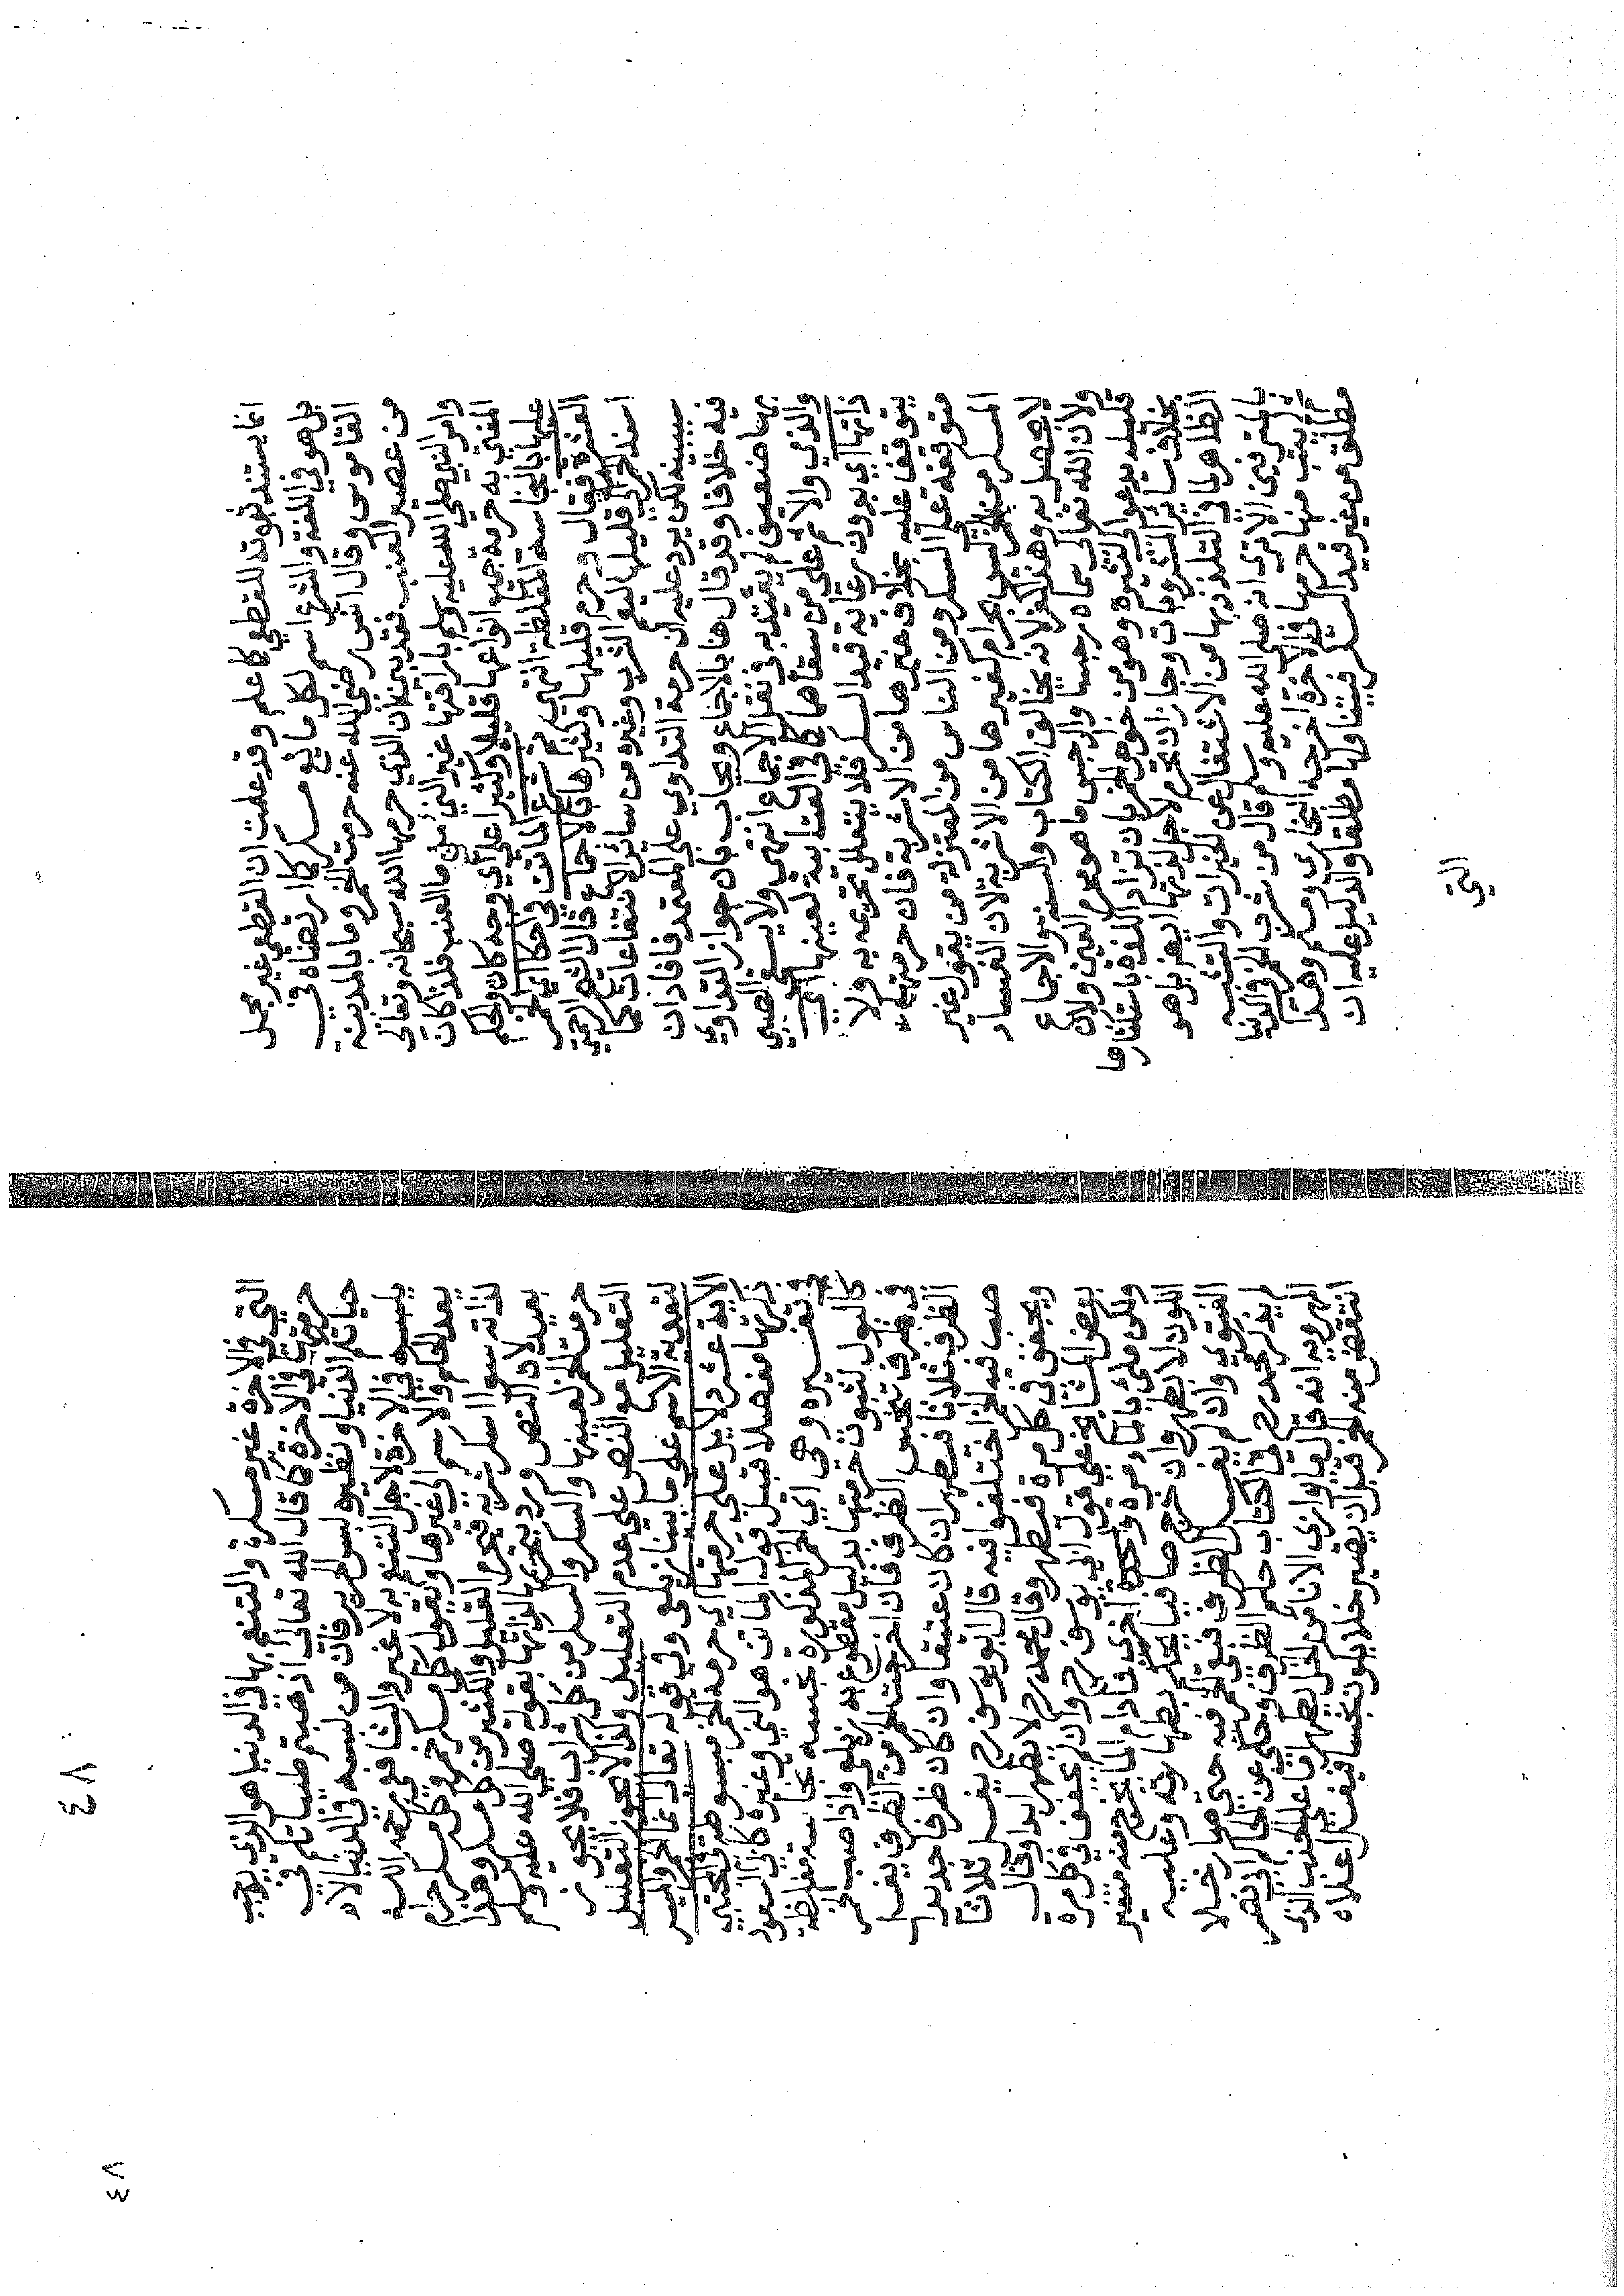 انما يستند ثبوته للقطعي كما علم وقد علمت ان القطعي غير مجمل
بل هو في اللغة والشرع اسم لكل ما يقع مسكر كما ارتضاه في
القاموس وقال انس رضي الله عنه حرمت الخمر وما بالمدينة
من عصير العنب فقد تبين ان الذي حرمها الله سبحانه وتعالى
وامر النبي صلى الله عليه وسلم باراقتها غير النيء من ما العنب فلذا كان
المفتى به حرمة جميع انواعها قليلا وكثيرا على اي وجه كان والحكم
عليها بالنجاسة المغلظة انتهى ثم شرع الماتن في احكام الخمر
العشرة فقال وحرم قليلها وكثيرها بالاجماع قال الشيخ الرحمتي
اسند الحرمة الى قليلها ليعم الشرب وغيره من سائر الانتفاعات كما
سيبينه لكن يرد عليه ان حرمة التداوي على المعتمد فافاد ان
فيه خلافا وقد قال هنا بالاجماع ويجاب بان جواز التداوي
بهما ضعيف لم يعتد به في نقل الاجماع انتهى ولا يسقى الصبي
والذمي والاثم على من سقاهما كما في العتابية لعينها اي
ذاتها اي بدون رعاية قيد السكر فلا يتعلق تحريمه به ولا
يتوقف عليه بخلاف غيرها من الاشربة فان حرمتها
متوقفة على السكر ومن الناس من المعتزلة من يقول غير
المسكر من الخمر ليس بحرام كغيرها من الاشربة لان الفساد
لا يحصل به وهذا كفر لانه يخالف الكتاب والسنة والاجماع
ولان الله تعالى سماه رجسا والرجس ما هو محرم العين ولان
قليله يدعو الى كثيره وهو من خواص الخمر بان تزاد اللذة باستكثارها
بخلاف سائر المشروبات وجاز ان تحرم لاجل لذتها ايضا بل هو
الظاهر لما في التلذذ بها من الاشتغال عن الخيرات والتشبه
بالمترفين الا ترى انه صلى الله عليه وسلم قال من شرب الخمر في الدنيا
ثم لم يتب منها حرمها في الاخرة اخرجه البخاري ومسلم وهذا
مطلق من غير قيد السكر فيتناولها مطلقا والدليل عليه ان
التي
التي في الاخرة غير مسكرة والتنعم بها في الدنيا هو الذي يوجب
حرمتها في الاخرة كما قال الله تعالى اذهبتم طيباتكم في
حياتكم الدنيا ونظيره لبس الحرير فان من لبسه في الدنيا لا
يلبسه في الاخرة لاجل التنعم به لا غير والشافعي رحمه الله
يعدي الحكم والاسم الى غيرها ويقول كل مسكر خمر وكل مسكر حرام
لذاته سوا اسكر شربه فيحرم القليل والكثير من كل مسكر وهذا
بعيد لان النص ورد بتحريمها لذاتها بقوله صلى الله عليه وسلم
حرمت الخمر لعينها والسكر والسكر من كل شراب فلا يجوز
التعليل مع النص على عدم التعليل ولذا لا يجوز التعليل
لتعدية الاسم على ما بينا زيلعي وفي قوله تعالى انما الخمر والميسر
الاية عشر دلايل على حرمتها اي حرمة الخمر مبسوطة في المجتبى
ذكرتها مفصلا قبيل قول الماتن هو النيء وغيره كابي السعود
في تفسيره وهي اي الخمر المذكورة نجسة نجاسة مغلظة
كالبول لثبوت حرمتها بدليل مقطوع به زيلعي واذا صب الخمر
في ظرف تنجس الظرف فان اخرجت الخمر من الظرف يغسل
الظرف ثلاثا فيطهر ان كان عتيقا وان كان ظرفا جديدا
صب فيه الخمر اختلفوا فيه قال ابو يوسف رح يغسل ثلاثا
ويجفف في كل مرة فيطهر وقال محمد رح لا يطهر ابدا وقال
بعض المشايخ على قول ابي يوسف رح وان لم يجفف في كل مرة
ولكن ملئ بالماء مرة واحدة اخرى فادام الما يخرج منه متغير
اللون لا يطهر وان خرج صافيا يحكم بطهارته وعليه
الفتوى وان لم يغسل الظرف فبقي الخمر فيه حتى صار خلا
لم يذكر محمد رح في الكتاب حكم الظرف وحكي عن الحاكم ابي نصر
المهرويه انه قال ما يوازي الاناء من الخل يطهر فاما على الحب الذي
انتقص منه الخمر قبل ان يصير خلا يكون نجسا فيغسل اعلاه
٤٨
٤٨